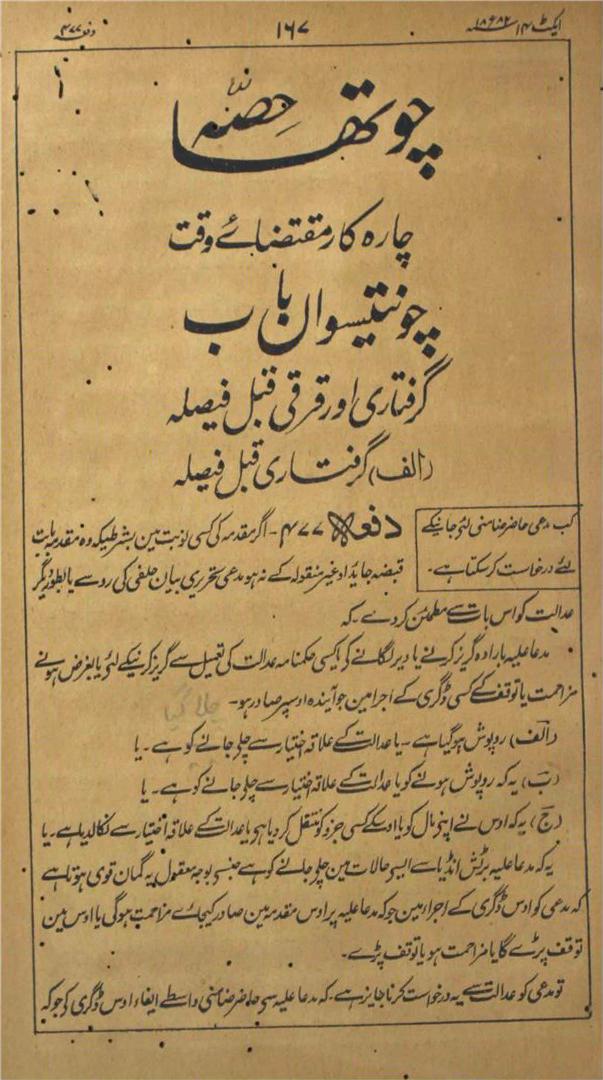 ایکٹ ۱۴ سنہ ۱۸۸۲ ۱۶۷ دفعہ ۴۷۷
چوتھا حصہ
چارہ کار مقتضائے وقت
چونتیسوان باب
گرفتاری اور قرقی قبل فیصلہ
(الف) گرفتاری قبل فیصلہ
کب مدعی حاضر ضامنی لئے جانیکے
لئے درخواست کرسکتا ہے۔
دفعہ ۴۷۷۔ اگر مقدمہ کی کسی نوبت مین بشرطیکہ وہ مقدمہ بابت
قبضہ جایداد غیر منقولہ کے نہو مدعی تحریری بیان حلفی کی روسے یا بطور دیگر
عدالت کو اس بات سے مطمئن کردے۔ کہ
مدعا علیہ بارادہ گریز کرنے یا دیر لگانے کی یا کسی حکمنامہ عدالت کی تعمیل سے گریز کرنیکے لئے یا بغرض ہونے
مزاحمت یا توقف کے کسی ڈگری کے اجرا مین جو آیندہ اوسپر صادر ہو۔
چلا گیا
(الف) روپوش ہوگیا ہے۔ یا عدالت کے علاقہ اختیار سے چلے جانے کو ہے۔ یا
(ب) یہ کہ روپوش ہونے کو یا عدالت کے علاقہ اختیار سے چلے جانے کو ہے۔ یا
(ج) یہ کہ اوس نے اپنی مال کو یا اوسکے کسی جزو کو منتقل کردیا ہو یا عدالت کے علاقہ اختیار سے نکالدیا ہے۔ یا
یہ کہ مدعا علیہ برٹش انڈیا سے ایسی حالات مین چلے جانے کو ہے جنسے بوجہ معقول یہ گمان قوی ہوتا ہے
کہ مدعی کو اوس ڈگری کے اجرا مین جو کہ مدعا علیہ پر اوس مقدمہ مین صادر کیجائے مزاحمت ہوگی یا اوس مین
توقف پڑے گا یا مزاحمت ہو یا توقف پڑے۔
تو مدعی کو عدالت سے یہ درخواست کرنا جایز ہے۔ کہ مدعا علیہ سے حاضر ضامنی واسطے ایفاء اوس ڈگری کے جو کہ